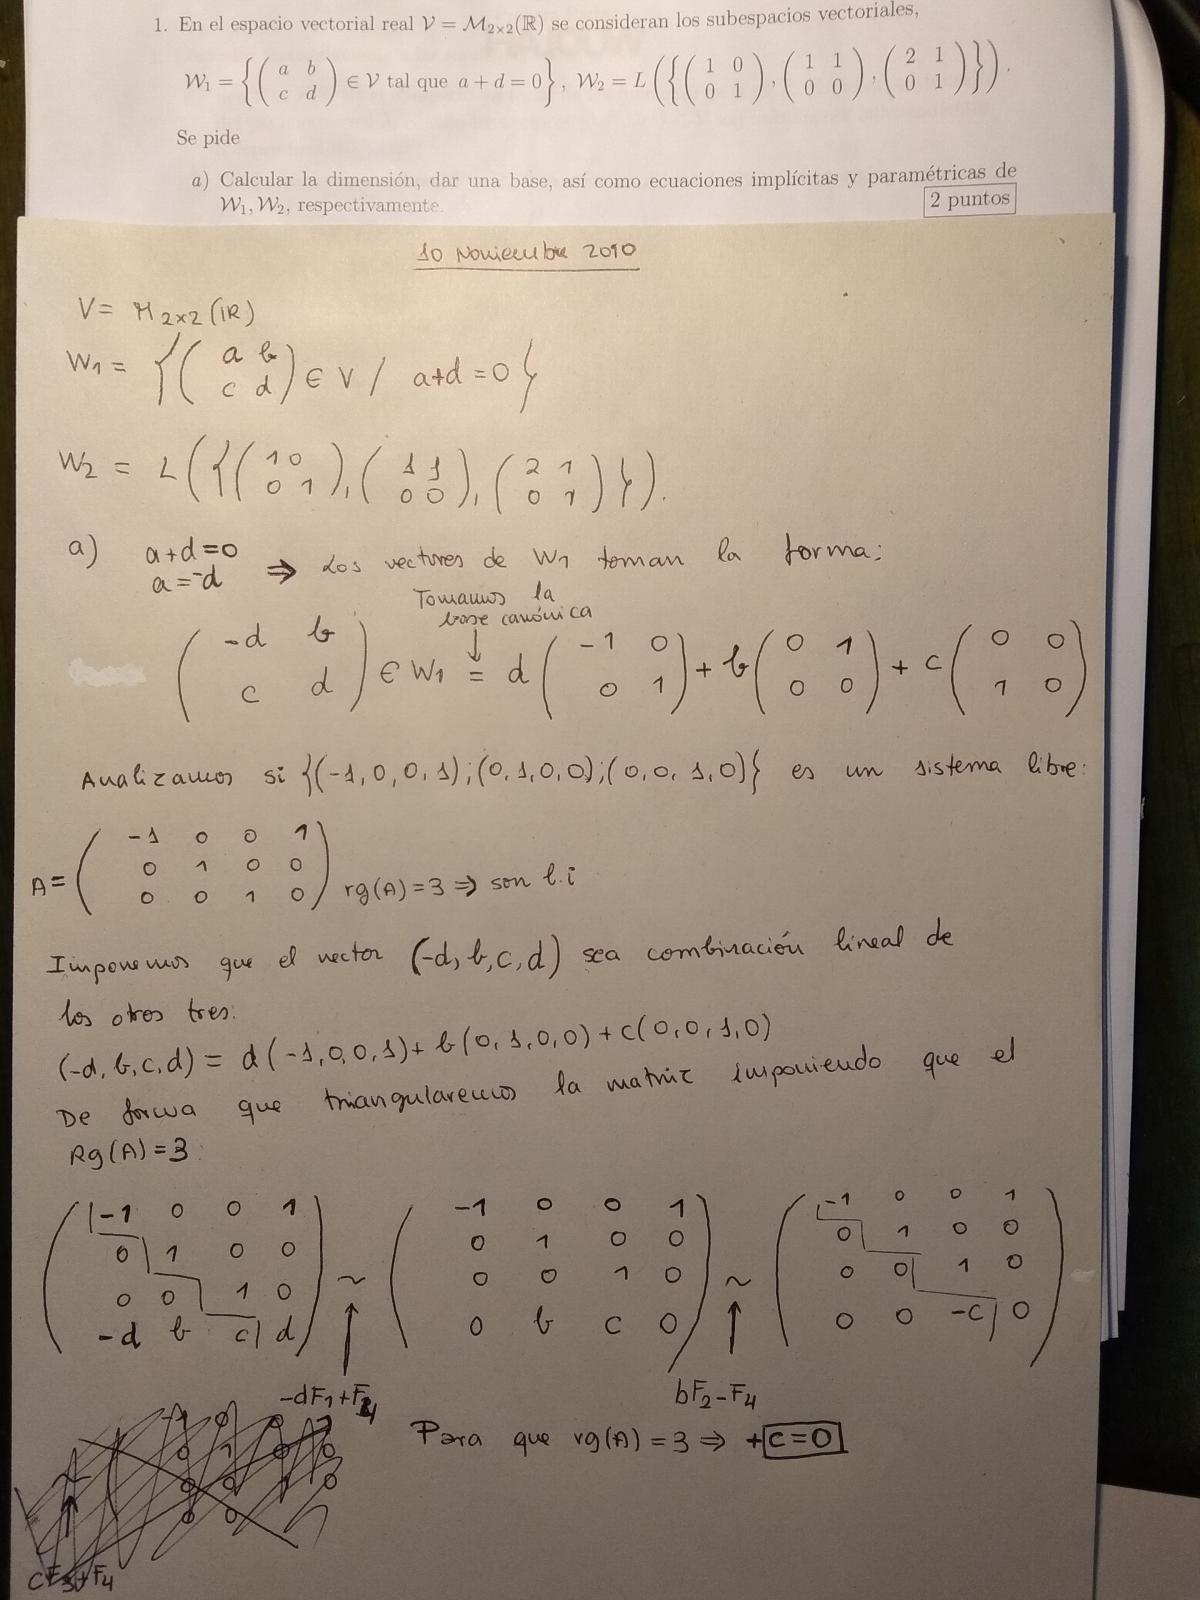 1. En el espacio vectorial real V = M2×2(ℝ) se consideran los subespacios vectoriales,
W1 = {( a b ; c d ) ∈ V tal que a + d = 0}, W2 = L({( 1 0 ; 0 1 ), ( 1 1 ; 0 0 ), ( 2 1 ; 0 1 )}).
Se pide
a) Calcular la dimensión, dar una base, así como ecuaciones implícitas y paramétricas de
W1, W2, respectivamente. 2 puntos
10 Noviembre 2010
V = M2×2(IR)
W1 = {( a b ; c d ) ∈ V / a+d = 0}
W2 = L({( 1 0 ; 0 1 ), ( 1 1 ; 0 0 ), ( 2 1 ; 0 1 )}).
a) a+d = 0
a = -d ⇒ Los vectores de W1 toman la forma:
Tomamos la
base canónica
( -d b ; c d ) ∈ W1 = d ( -1 0 ; 0 1 ) + b ( 0 1 ; 0 0 ) + c ( 0 0 ; 1 0 )
Analizamos si {(-1,0,0,1);(0,1,0,0);(0,0,1,0)} es un sistema libre:
A = ( -1 0 0 1 ; 0 1 0 0 ; 0 0 1 0 ) rg(A) = 3 ⇒ son l.i
Imponemos que el vector (-d,b,c,d) sea combinación lineal de
los otros tres:
(-d,b,c,d) = d(-1,0,0,1) + b(0,1,0,0) + c(0,0,1,0)
De forma que triangularemos la matriz imponiendo que el
Rg(A) = 3:
( -1 0 0 1 ; 0 1 0 0 ; 0 0 1 0 ; -d b c d ) ~ ( -1 0 0 1 ; 0 1 0 0 ; 0 0 1 0 ; 0 b c 0 ) ~ ( -1 0 0 1 ; 0 1 0 0 ; 0 0 1 0 ; 0 0 -c 0 )
-dF1+F4 bF2-F4
Para que rg(A) = 3 ⇒ +c = 0
cF3+F4